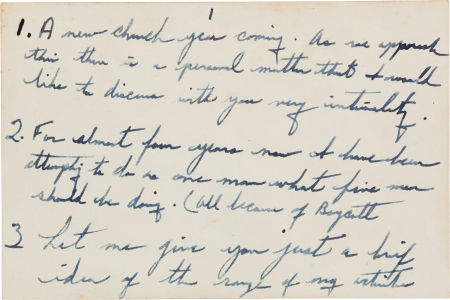 1
1. A new church year coming. As we approach
this there is a personal matter that I would
like to discuss with you very intimately.
2. For almost four years now I have been
attempting to do as one man what five men
should be doing. (All because of Boycott
3 Let me give you just a brief
idea of the range of my activities